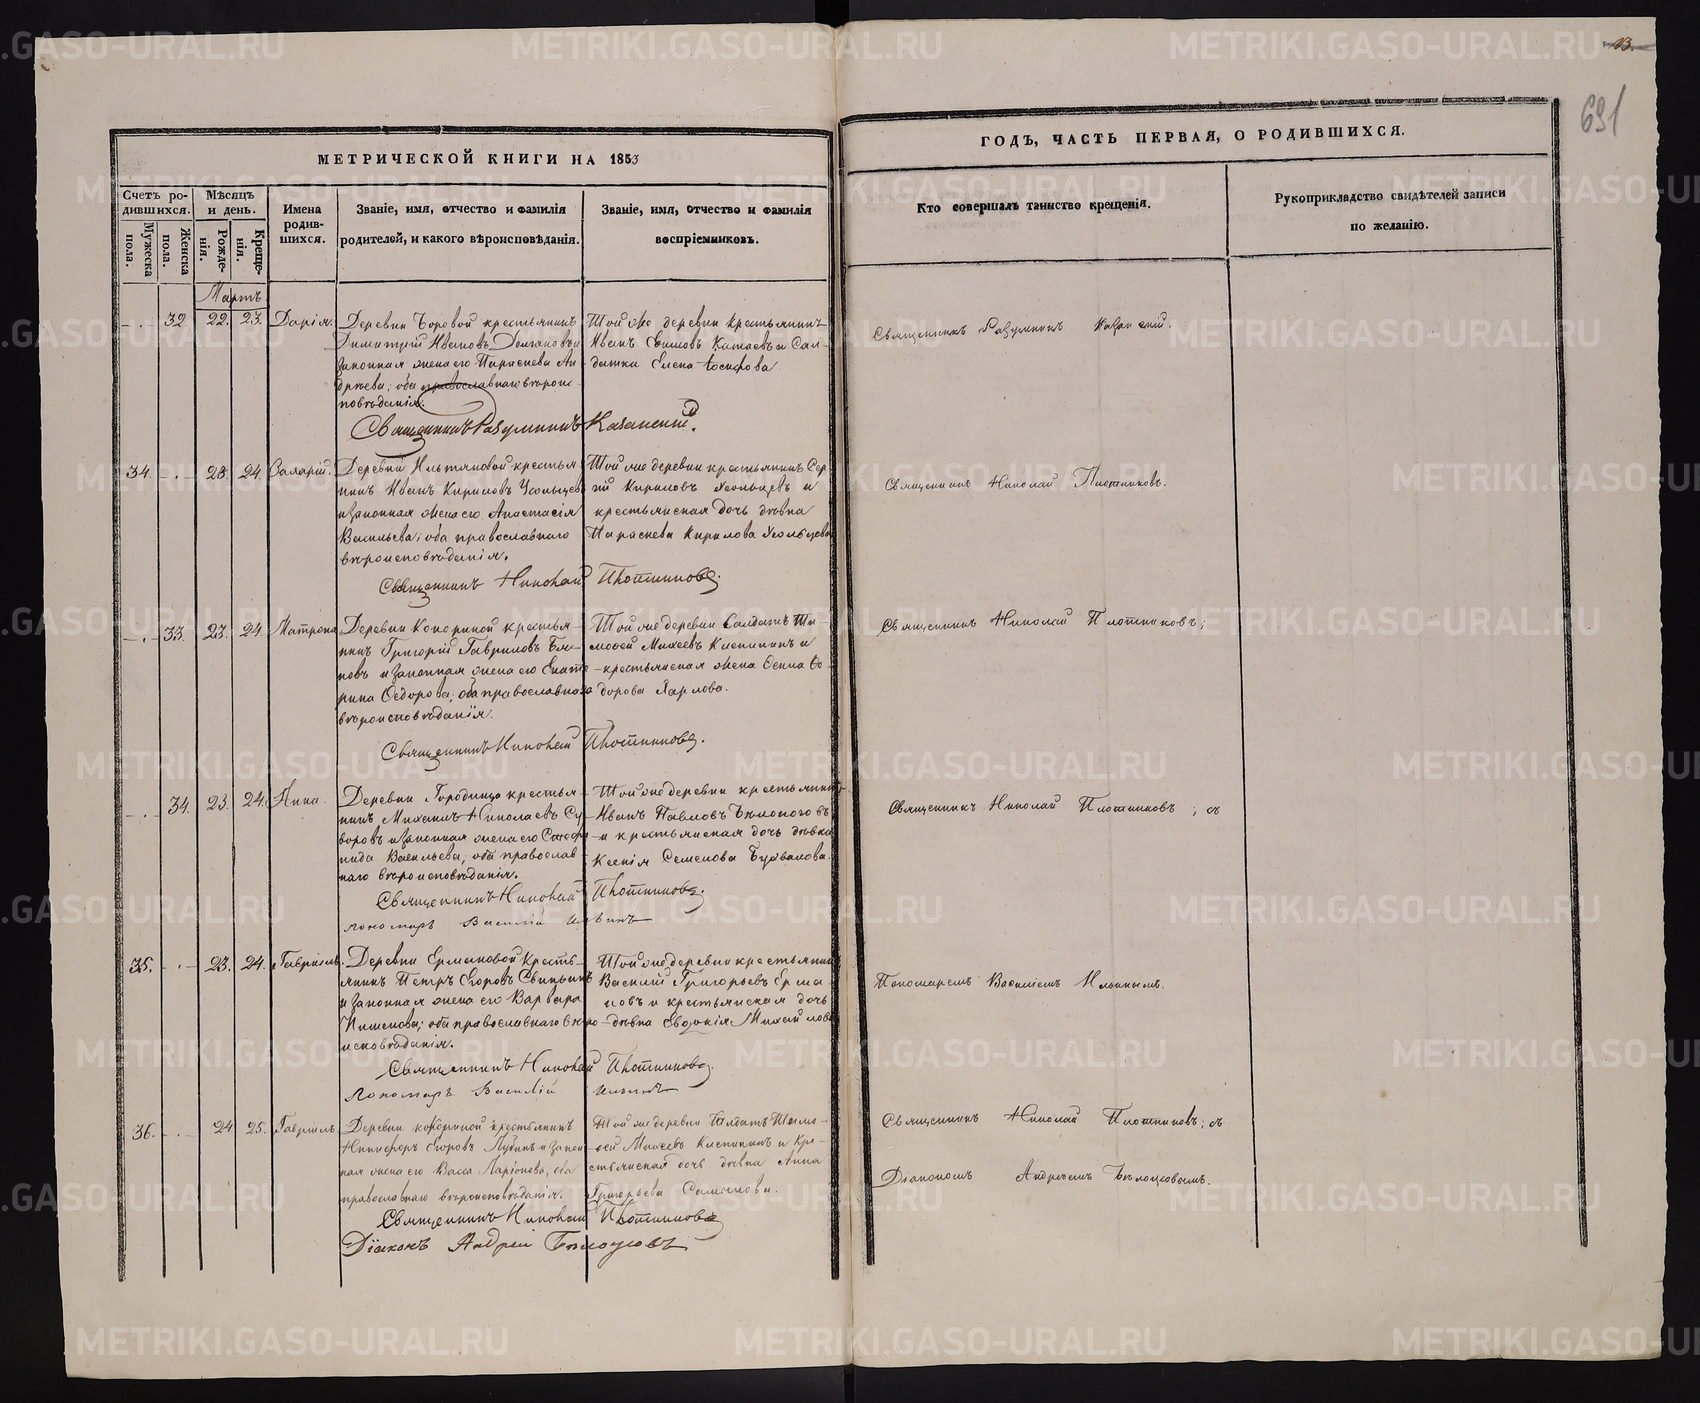 13.
691
МЕТРИЧЕСКОЙ КНИГИ НА 1853
ГОДЪ, ЧАСТЬ ПЕРВАЯ, О РОДИВШИХСЯ.
Счетъ родившихся.
Мужеска пола.
Женска пола.
Мѣсяцъ и день.
Рожденія.
Крещенія.
Имена родившихся.
Званіе, имя, отчество и фамилія
родителей, и какого вѣроисповѣданія.
Званіе, имя, отчество и фамилія
воспріемниковъ.
Кто совершалъ таинство крещенія.
Рукоприкладство свидѣтелей записи
по желанію.
Мартъ
32. 22. 23. Дарія.
Деревни Боровой крестьянинъ
Димитрій Ивановъ и
законная жена его Параскева Ан-
дреева; оба православнаго вѣроис-
повѣданія.
Той же деревни крестьянинъ
Иванъ Катаевъ и Сол-
датка Елена
Священникъ Разумникъ
Священникъ Разумникъ Казанскій.
34. 23. 24.
Деревни крестья-
нинъ Иванъ Кириловъ Усольцевъ
и законная жена его Анастасія
Васильева; оба православнаго
вѣроисповѣданія.
Той же деревни крестьянинъ Сер-
гій Кириловъ Усольцевъ и
крестьянская дочь дѣвка
Параскева Кирилова Усольцева
Священникъ Николай Плотниковъ.
Священникъ Николай Плотниковъ.
33. 23. 24. Матрона
Деревни Кокориной крестья-
нинъ Григорій Гавриловъ
и законная жена его Екате-
рина Ѳедорова, оба православнаго
вѣроисповѣданія.
Той же деревни Солдатъ Ти-
моѳей Михеевъ и
крестьянская жена
Священникъ Николай Плотниковъ;
Священникъ Николай Плотниковъ.
34. 23. 24. Анна.
Деревни Городища крестья-
нинъ Михаилъ Николаевъ Су-
воровъ и законная жена его
Васильева; оба православ-
наго вѣроисповѣданія.
Той же деревни крестьянинъ
Иванъ Павловъ
и крестьянская дочь дѣвка
Ксенія Семенова
Священникъ Николай Плотниковъ; съ
Священникъ Николай Плотниковъ.
Пономарь Василій Ильинъ
35. 23. 24. Гавріилъ.
Деревни Ермаковой кресть-
янинъ Петръ Егоровъ
и законная жена его Варвара
оба православнаго вѣро-
исповѣданія.
Той же деревни крестьянинъ
Василій Григорьевъ Ерма-
ковъ и крестьянская дочь
дѣвка Евдокія Михайлова
Пономаремъ Василіемъ Ильинымъ.
Священникъ Николай Плотниковъ.
Пономарь Василій Ильинъ
36. 24. 25. Гавріилъ
Деревни Кокориной крестьянинъ
Никифоръ Егоровъ и закон-
ная жена его Васса Ларіонова, оба
православнаго вѣроисповѣданія.
Той же деревни Солдатъ Тимо-
ѳей Михеевъ и кре-
стьянская дочь дѣвка Анна
Григорьева
Священникъ Николай Плотниковъ; съ
Діакономъ Андреемъ Бѣлоусовымъ.
Священникъ Николай Плотниковъ
Діаконъ Андрей Бѣлоусовъ
METRIKI.GASO-URAL.RU